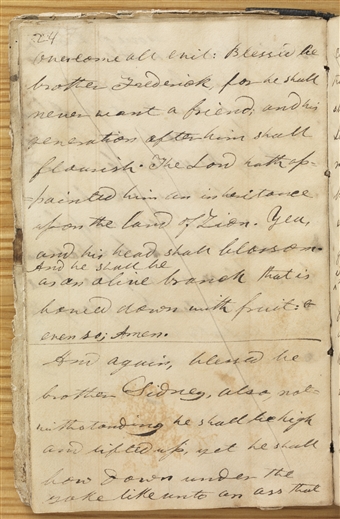 24
overcome all evil: Blessed be
brother Frederick, for he shall
never want a friend, and his
generation after him shall
flourish. The Lord hath ap-
pointed him an inheritance
upon the land of Zion. Yea,
and his head shall blossom.
And he shall be
as an olive branch that is
bowed down with fruit: &
even so; Amen.
And again, blessed be
brother Sidney, also not-
withstanding he shall be high
and lifted up, yet he shall
bow down under the
yoke like unto an ass that